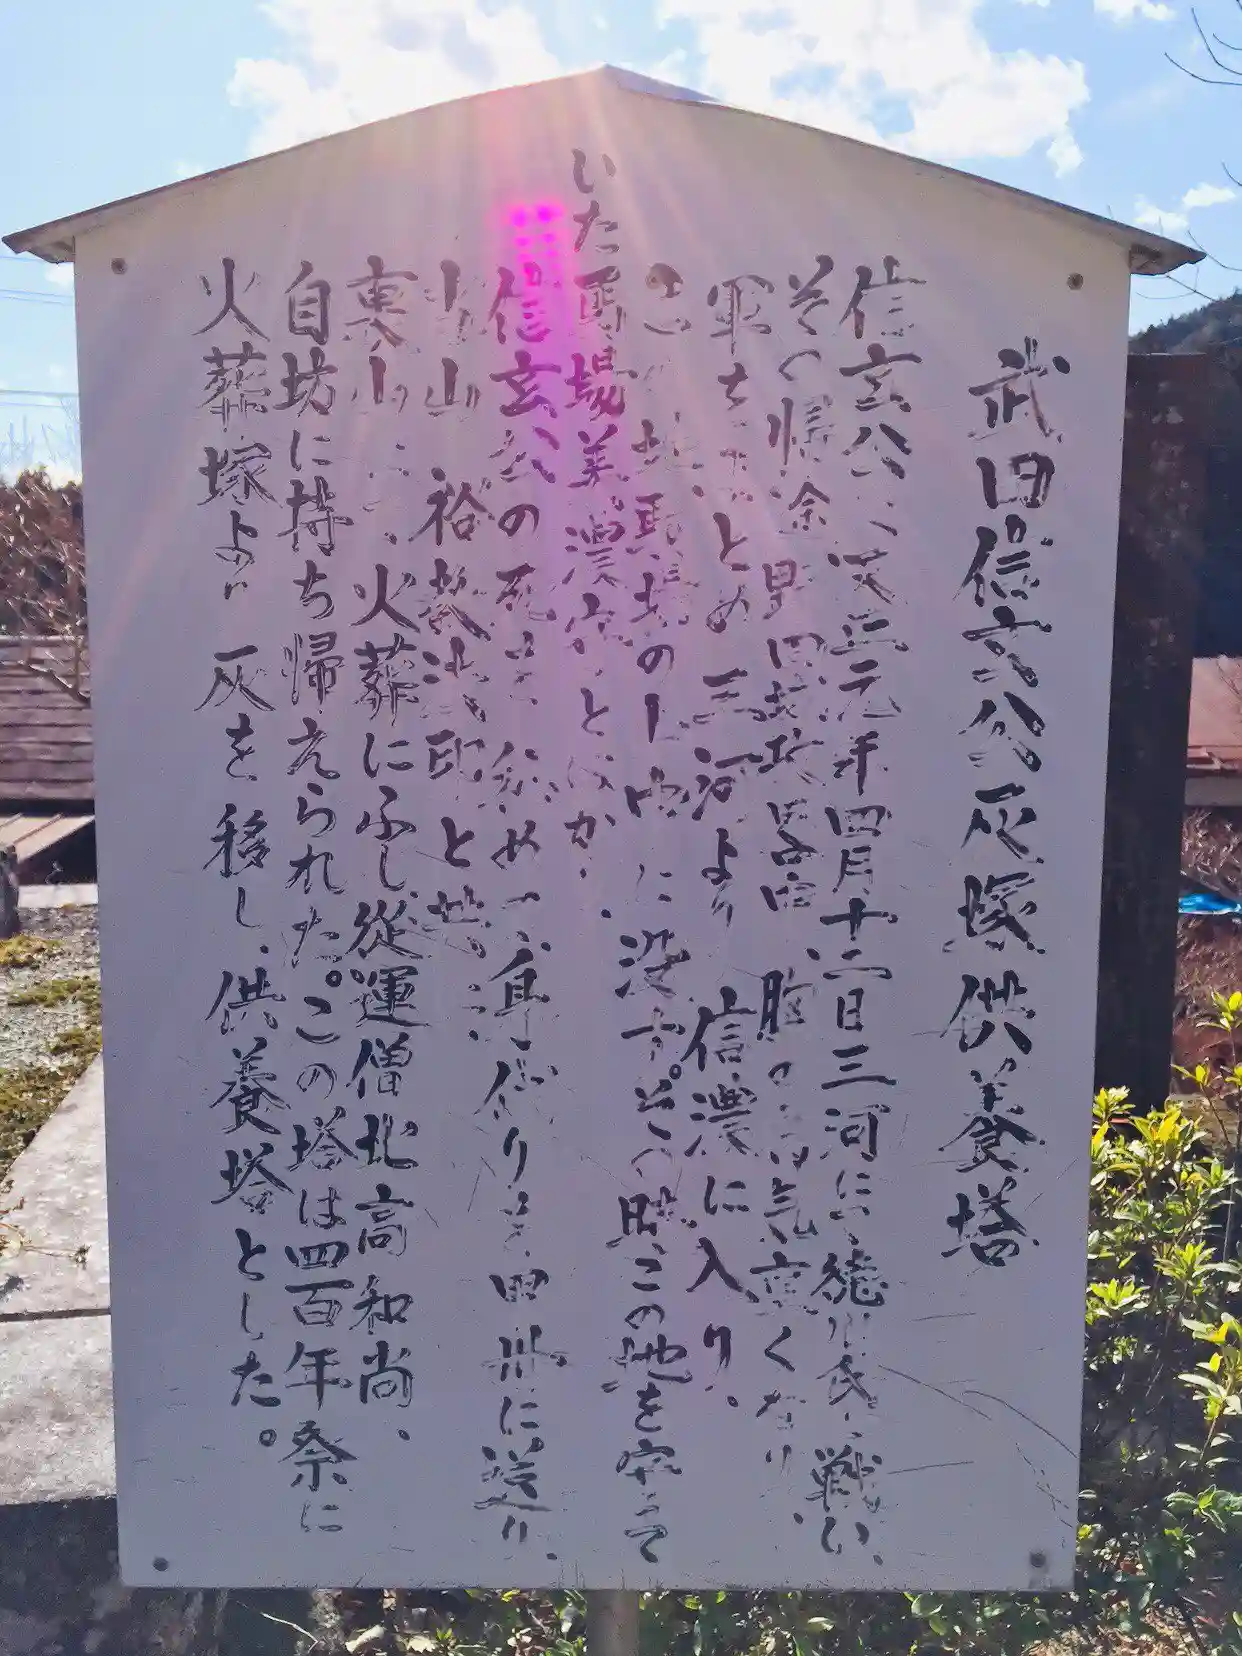 武田信玄公灰塚供養塔
信玄公 天正元年四月十二日三河にて徳川氏と戦い、
その帰途野田城攻囲中、肺の 気重くなり、
軍を とめ三河より信濃に入り、
この地 馬場の 中に没す。その時この地を守って
いた馬場美濃守 とか。
信玄公の死を秘め一身代りを甲州に送り、
当山 裕 法印と
裏山にて火葬にふし、従運僧北高和尚、
自坊に持ち帰えられた。この塔は四百年祭に
火葬塚より灰を移し、供養塔とした。